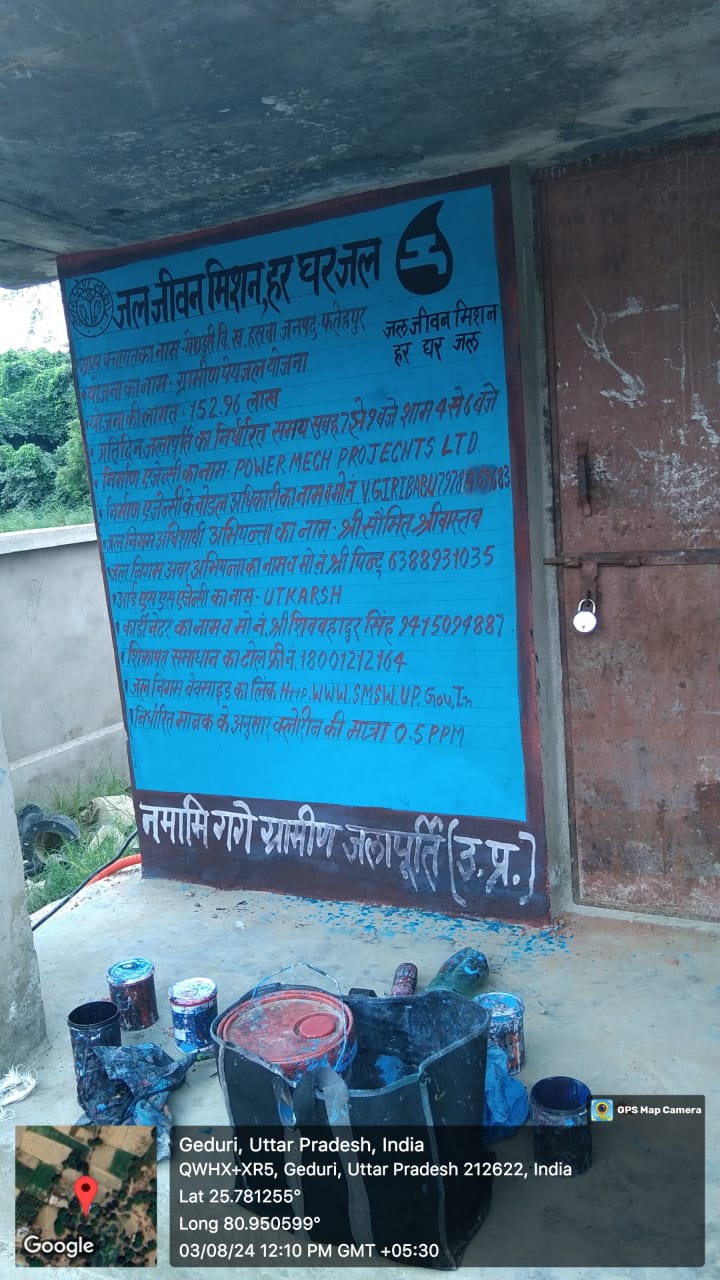 जल जीवन मिशन, हर घर जल
जल जीवन मिशन
हर घर जल
ग्राम पंचायत का नाम - गेघडुरी वि.ख. हसवा जनपद - फतेहपुर
योजना का नाम - ग्रामीण पेयजल योजना
योजना की लागत - 152.96 लाख
प्रतिदिन जलापूर्ति का निर्धारित समय सुबह 7 से 9 बजे शाम 4 से 6 बजे
निर्माण एजेन्सी का नाम - POWER MECH PROJECHTS LTD.
निर्माण एजेन्सी के नोडल अधिकारी का नाम व मो.नं. V.GIRIBABU 7978
जल निगम अधिशाषी अभियन्ता का नाम - श्री सौमित्र श्रीवास्तव
जल निगम अवर अभियन्ता का नाम व मो.नं. श्री पिन्टू 6388931035
आई एस एस एजेन्सी का नाम - UTKARSH
कार्डीनेटर का नाम व मो नं. श्री शिवबहादुर सिंह 9415094887
शिकायत समाधान का टोल फ्री नं. 18001212164
जल निगम वेबसाइड का लिंक Http.WWW.SMSW.UP.Gov,In
निर्धारित मानक के अनुसार क्लोरीन की मात्रा 0.5 PPM
नमामि गगे ग्रामीण जलापूर्ति (उ.प्र.)
GPS Map Camera
Geduri, Uttar Pradesh, India
QWHX+XR5, Geduri, Uttar Pradesh 212622, India
Lat 25.781255°
Long 80.950599°
03/08/24 12:10 PM GMT +05:30
Google